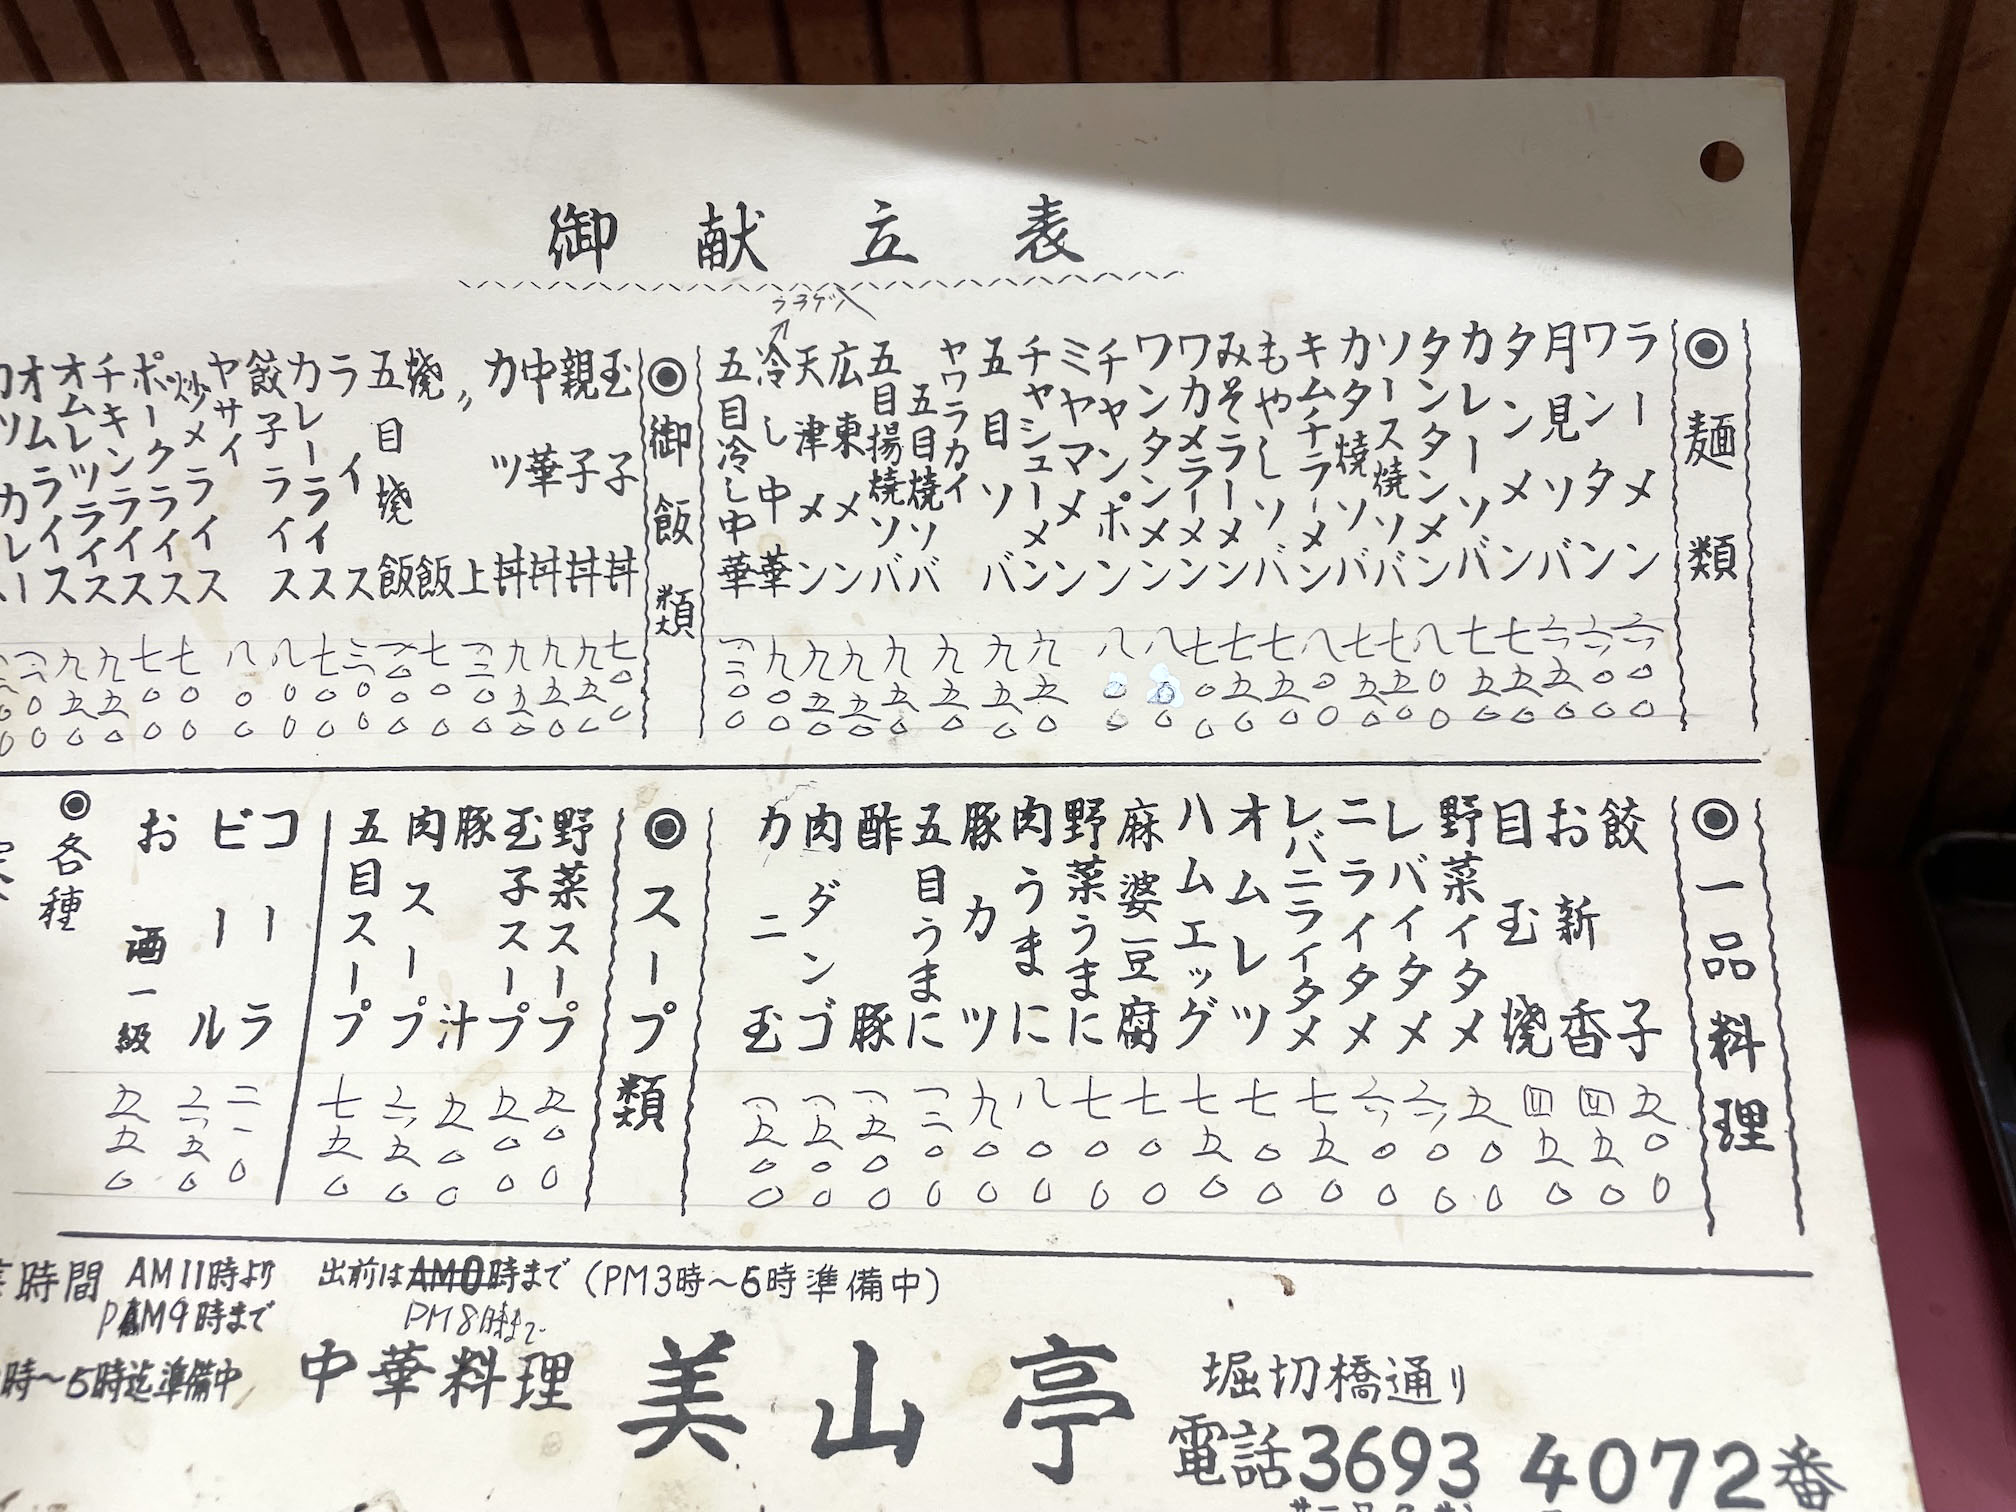 御献立表
ウラゲ入
◎麺類
ラーメン 六〇〇
ワンタン 六〇〇
月見ソバ 六五〇
タンメン 七五〇
カレーソバ 七五〇
タンタンメン 八〇〇
ソース焼ソバ 七五〇
カタ焼ソバ 七五〇
キムチラーメン 八〇〇
もやしソバ 七五〇
みそラーメン 七五〇
ワカメラーメン 七〇〇
ワンタンメン 八五〇
チャンポン 八〇〇
ミヤマメン
チャシューメン 九五〇
五目ソバ 九五〇
ヤワラカイ五目焼ソバ 九五〇
五目揚焼ソバ 九五〇
広東メン 九五〇
天津メン 九五〇
冷し中華 九〇〇
五目冷し中華 一二〇〇
◎御飯類
玉子丼 七〇〇
親子丼 九五〇
中華丼 九五〇
カツ丼 九五〇
〃上 一二〇〇
焼飯 七〇〇
五目焼飯 一〇〇〇
ライス 二〇〇
カレーライス 七〇〇
餃子ライス 八〇〇
ヤサイ炒メライス 八〇〇
ポークライス 七〇〇
チキンライス 七〇〇
オムレツライス 九五〇
オムライス 九五〇
◎一品料理
餃子 五〇〇
お新香 四五〇
目玉焼 四五〇
野菜イタメ 五〇〇
レバイタメ 六〇〇
ニライタメ 六〇〇
レバニライタメ 七五〇
オムレツ 七〇〇
ハムエッグ 七五〇
麻婆豆腐 七〇〇
野菜うまに 七〇〇
肉うまに 八〇〇
豚カツ 九〇〇
五目うまに 一二〇〇
酢豚 一五〇〇
肉ダンゴ 一五〇〇
カニ玉 一五〇〇
◎スープ類
野菜スープ 五〇〇
玉子スープ 五〇〇
豚汁 五〇〇
肉スープ 六五〇
五目スープ 七五〇
コーラ 二一〇
ビール 六五〇
お酒一級 五五〇
◎各種
時間 AM11時より 出前は時まで (PM3時〜5時準備中)
PM9時まで PM8時まで
時〜5時迄準備中
中華料理 美山亭 堀切橋通り
電話3693 4072番